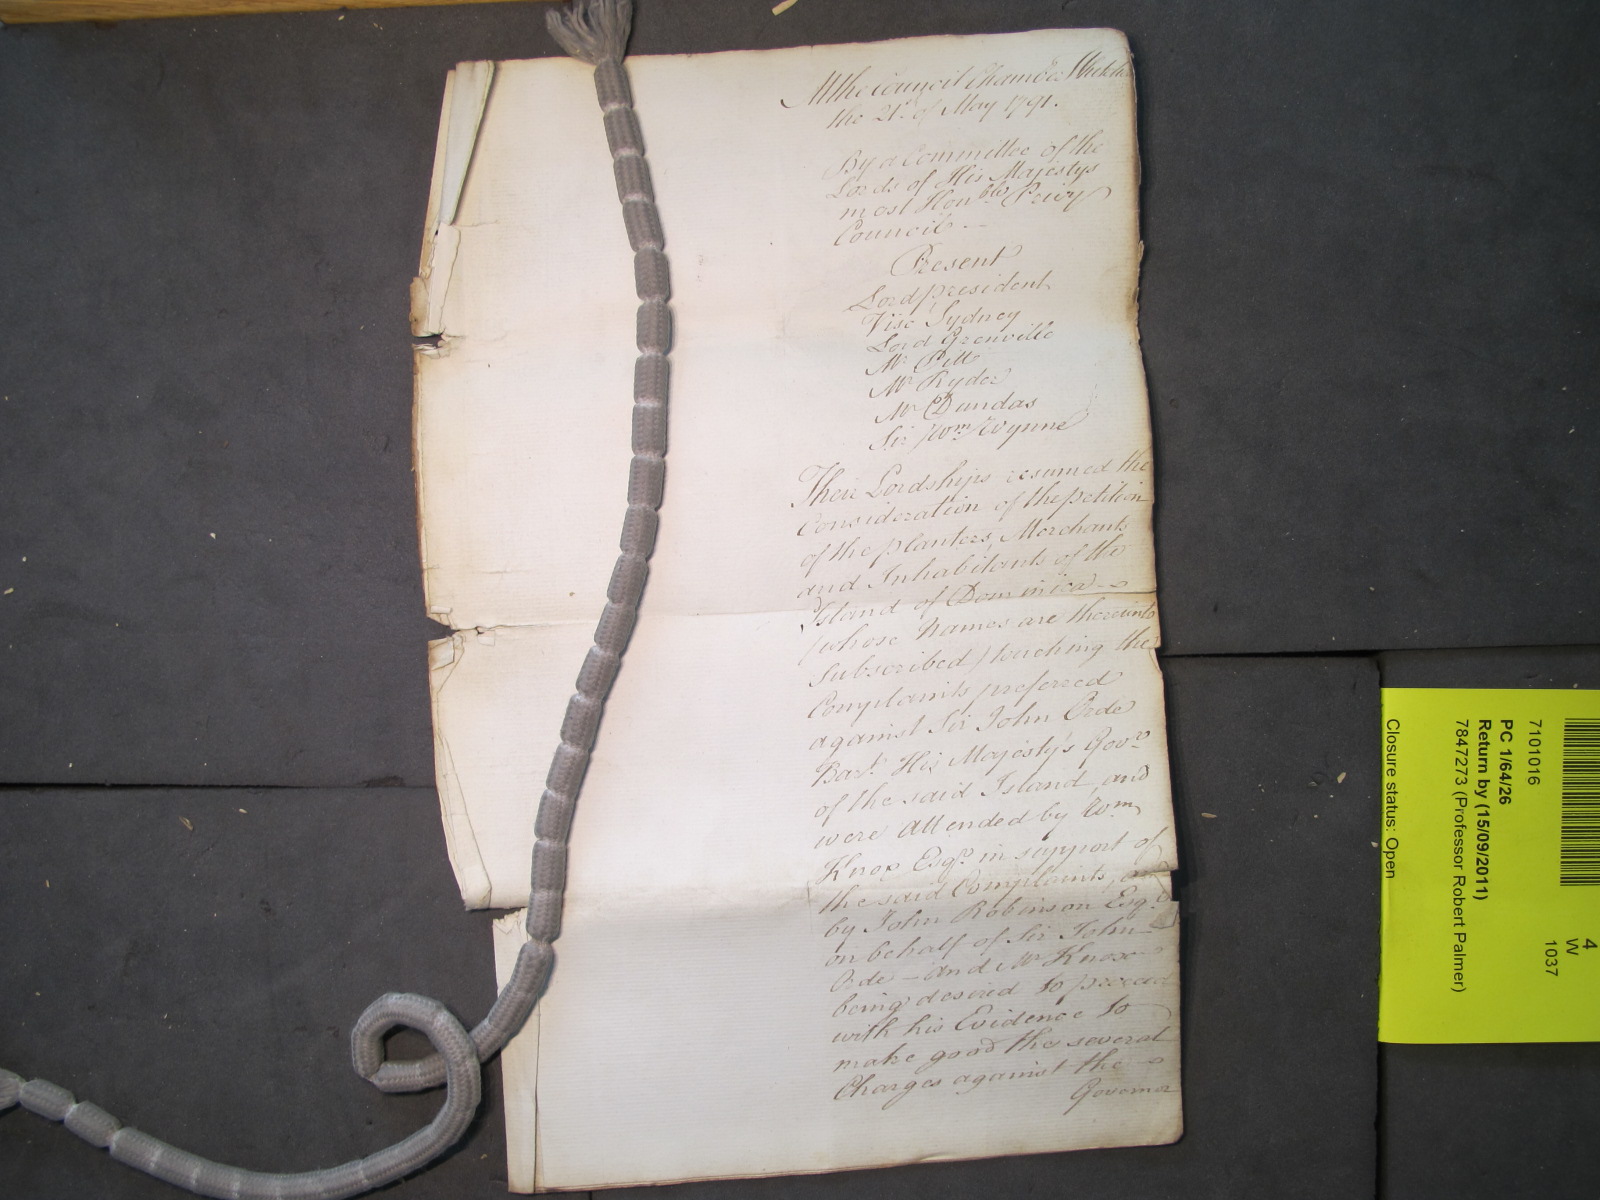 At the Council Chamber Whitehall
the 21st. of May 1791.
By a Committee of the
Lords of His Majestys
most Honble Privy
Council --
Present
Lord president
Visc Sydney
Lord Grenville
Mr Pitt
Mr Ryder
Mr Dundas
Sir Wm Wynne
Their Lordships resumed the
Consideration of the petition
of the planters, Merchants
and Inhabitants of the
Island of Dominica --
(whose Names are thereunto
Subscribed) touching the
Complaints preferred
against Sir John Orde
Bart. His Majesty's Govr.
of the said Island, and
were attended by Wm
Knox Esqr. in support of
the said Complaints, and
by John Robinson Esqr.
on behalf of Sir John
Orde - and Mr Knox
being desired to proceed
with his Evidence to
make good the several
Charges against the
Governor
4
W
1037
7101016
PC 1/64/26
Return by (15/09/2011)
7847273 (Professor Robert Palmer)
Closure status: Open